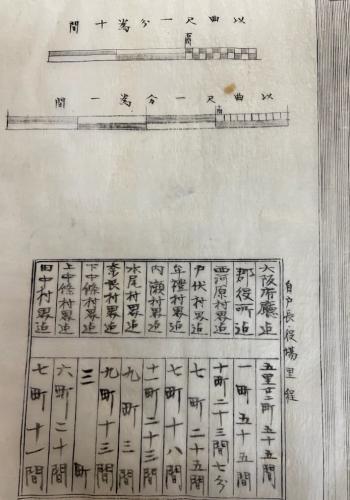 以曲尺一分為十間
以曲尺一分為一間
自戸長役場里程
大阪府廳迠 五里廿町五十五間
郡役所迠 一町五十五間
西河原村界迠 十町二十三間七分
戸伏村界迠 七町二十五間
牟禮村界迠 七町十八間
内瀬村界迠 十一町二十三間
水尾村界迠 九町三間
奈良村界迠 九町十三間
下中條村界迠 三町
上中條村界迠 六町二十間
田中村界迠 七町十一間